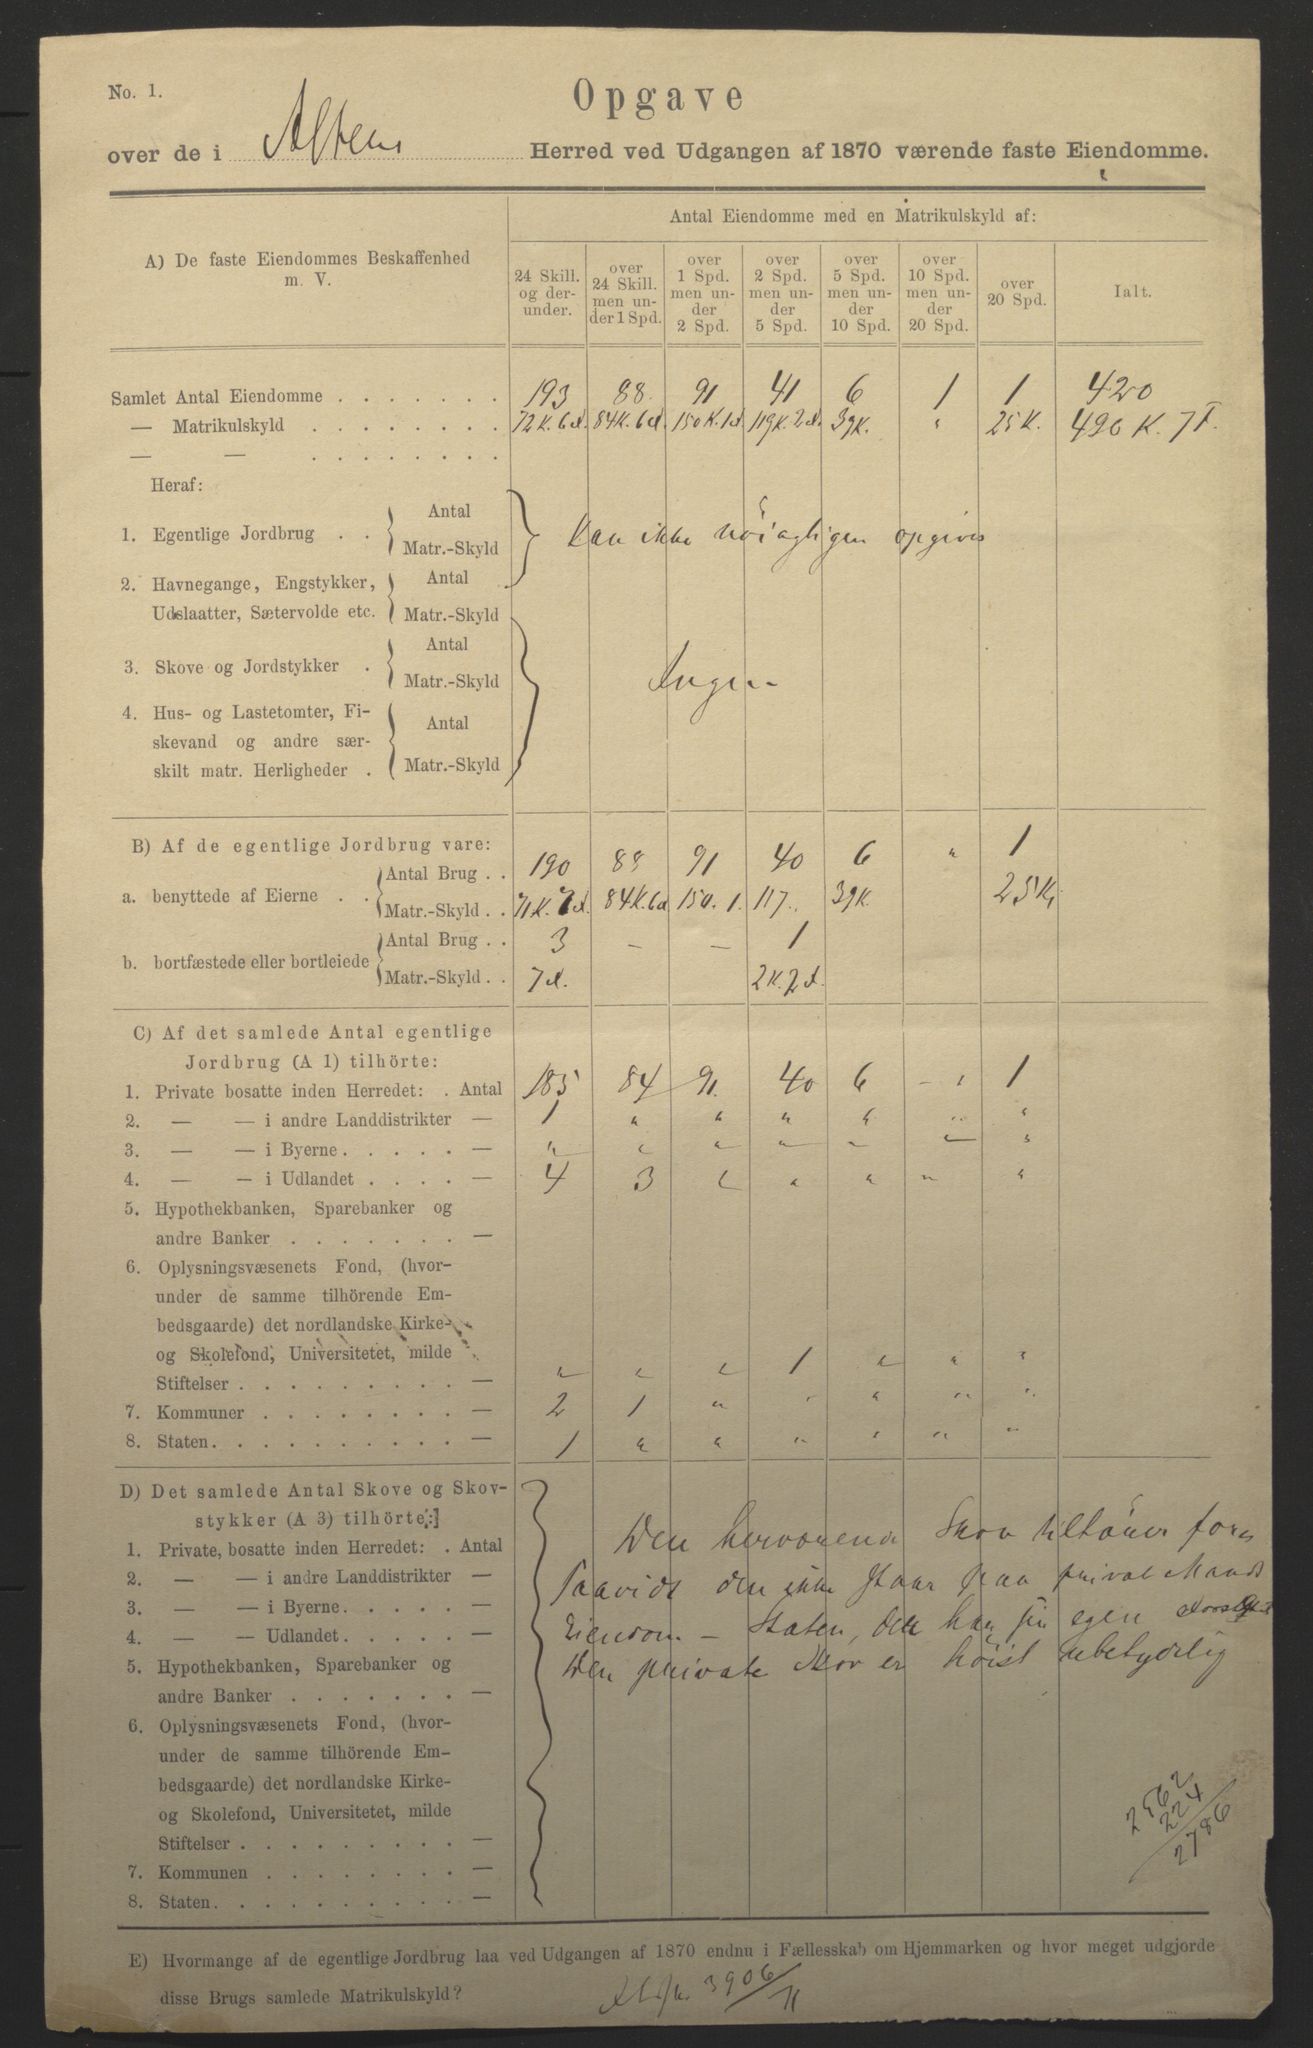 No. 1.
Opgave
over de i Alten Herred ved Udgangen af 1870 værende faste Eiendomme.
A) De faste Eiendommes Beskaffenhed m. V.
Antal Eiendomme med en Matrikulskyld af:
24 Skill. og derunder.
over 24 Skill. men under 1 Spd.
over 1 Spd. men under 2 Spd.
over 2 Spd. men under 5 Spd.
over 5 Spd. men under 10 Spd.
over 10 Spd. men under 20 Spd.
over 20 Spd.
Ialt.
Samlet Antal Eiendomme . . . . . . . 193 88. 91 41 6 1 1 420
— Matrikulskyld . . . . . . . . 72 K. 6 d. 84K. 6d 150 K. 1d 119K. 2d. 39K. " 25 K. 490 K. 7
— — . . . . . . . .
Heraf:
1. Egentlige Jordbrug . . Antal
Matr.-Skyld
Kan ikke nöiagtigen opgives
2. Havnegange, Engstykker, Antal
Udslaatter, Sætervolde etc. Matr.-Skyld
3. Skove og Jordstykker . Antal
Matr.-Skyld
Ingen
4. Hus- og Lastetomter, Fi-
skevand og andre sær- Antal
skilt matr. Herligheder . Matr.-Skyld
B) Af de egentlige Jordbrug vare:
a. benyttede af Eierne . . Antal Brug . . 190 88 91 40 6 " 1
Matr.-Skyld . . 71 K. 7 d. 84K. 6d 150. 1. 117. 39K. 25 K.
b. bortfæstede eller bortleiede Antal Brug . . 3 — — 1
Matr.-Skyld . . 7d. 2K. 2d.
C) Af det samlede Antal egentlige
Jordbrug (A 1) tilhörte:
1. Private bosatte inden Herredet: . Antal 185 84 91. 40 6 - " 1
2. — — i andre Landdistrikter — 1 " " " " " "
3. — — i Byerne . . . . . — " " " " " " "
4. — — i Udlandet . . . . — 4 3 " " " " "
5. Hypothekbanken, Sparebanker og
andre Banker . . . . . . . —
6. Oplysningsvæsenets Fond, (hvor-
under de samme tilhörende Em-
bedsgaarde) det nordlandske Kirke-
og Skolefond, Universitetet, milde
Stiftelser . . . . . . . . . — " " " 1 " " "
7. Kommuner . . . . . . . . — 2 1 " " " " "
8. Staten . . . . . . . . . . — 1 " " " " " "
D) Det samlede Antal Skove og Skov-
stykker (A 3) tilhörte:]
1. Private, bosatte inden Herredet: . Antal
2. — — i andre Landdistrikter —
3. — — i Byerne . . . . . —
4. — — Udlandet . . . . . —
5. Hypothekbanken, Sparebanker og
andre Banker . . . . . . . —
6. Oplysningsvæsenets Fond, (hvor-
under de samme tilhörende Em-
bedsgaarde) det nordlandske Kirke-
og Skolefond, Universitetet, milde
Stiftelser . . . . . . . . . —
7. Kommunen . . . . . . . . —
8. Staten . . . . . . . . . . —
Den herværende Skov tilhörer for
saavidt den ikke staar paa privat Mands
Eiendom — Staten, der har sin egen
Den private Skov er höist ubetydelig
2562
224
2786
E) Hvormange af de egentlige Jordbrug laa ved Udgangen af 1870 endnu i Fællesskab om Hjemmarken og hvor meget udgjorde
disse Brugs samlede Matrikulskyld?
3906/71